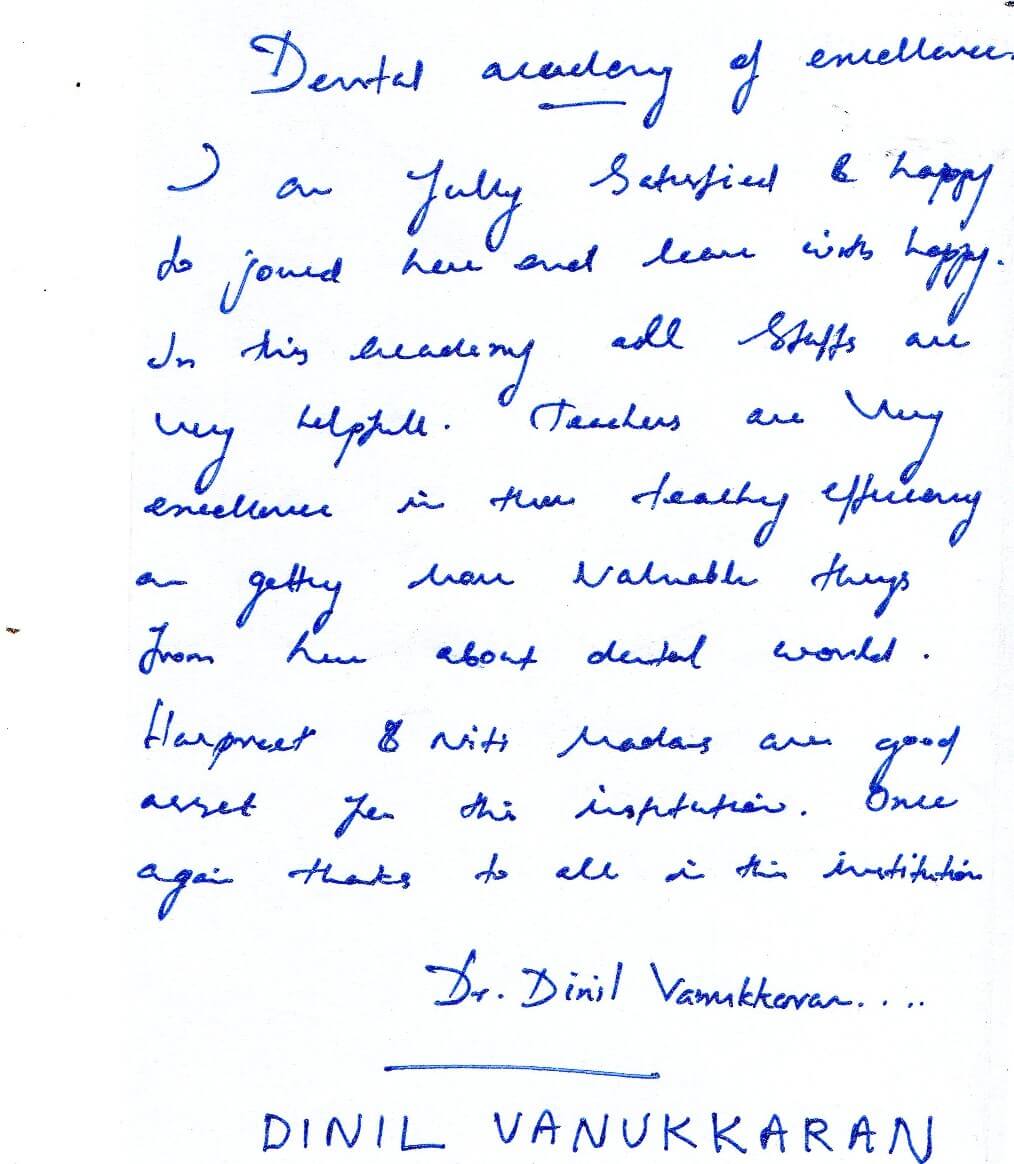 Dental academy of excellence
I am fully Satisfied & happy
to joined here and leave with happy.
In this academy all Staffs are
very helpfull. Teachers are Very
excellence in their teaching efficiency
am getting more Valuable things
from here about dental world.
Harpreet & Niti Madams are good
asset for this institution. Once
again thanks to all in this institution
Dr. Dinil Vanukkaran....
DINIL VANUKKARAN